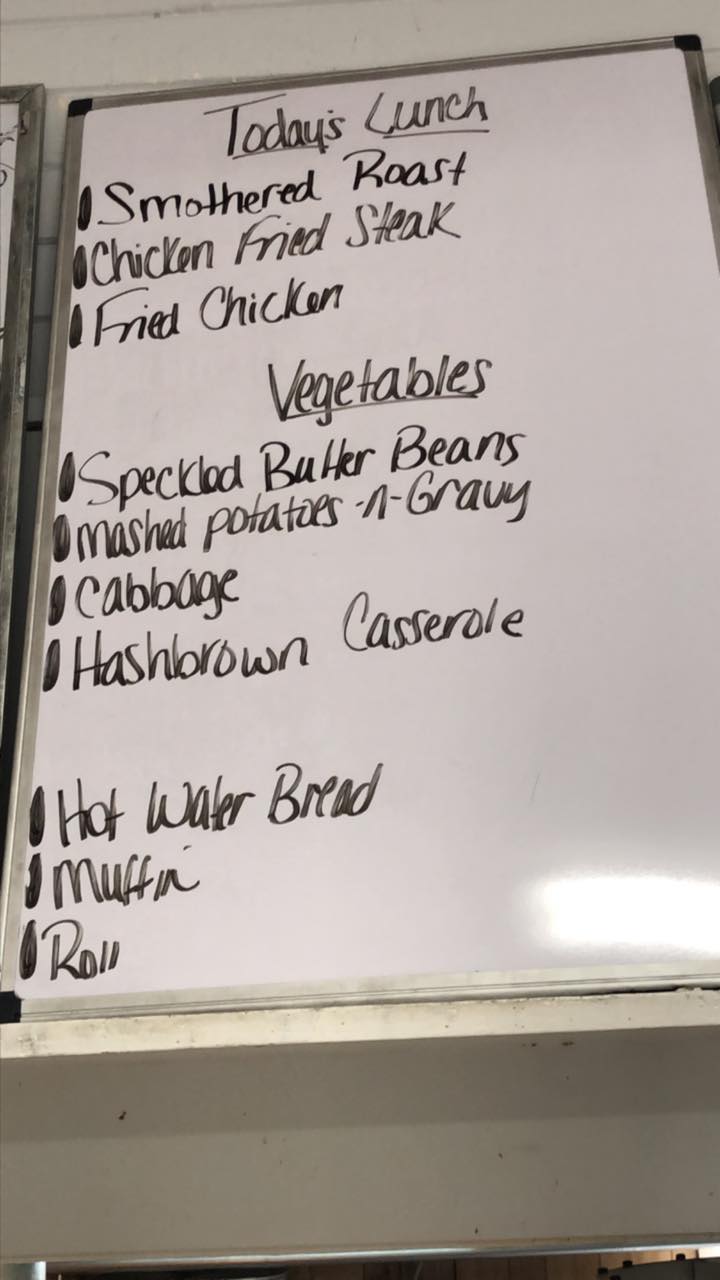 Today's Lunch
Smothered Roast
Chicken Fried Steak
Fried Chicken
Vegetables
Speckled Butter Beans
mashed potatoes -n- Gravy
Cabbage
Hashbrown Casserole
Hot Water Bread
Muffin
Roll